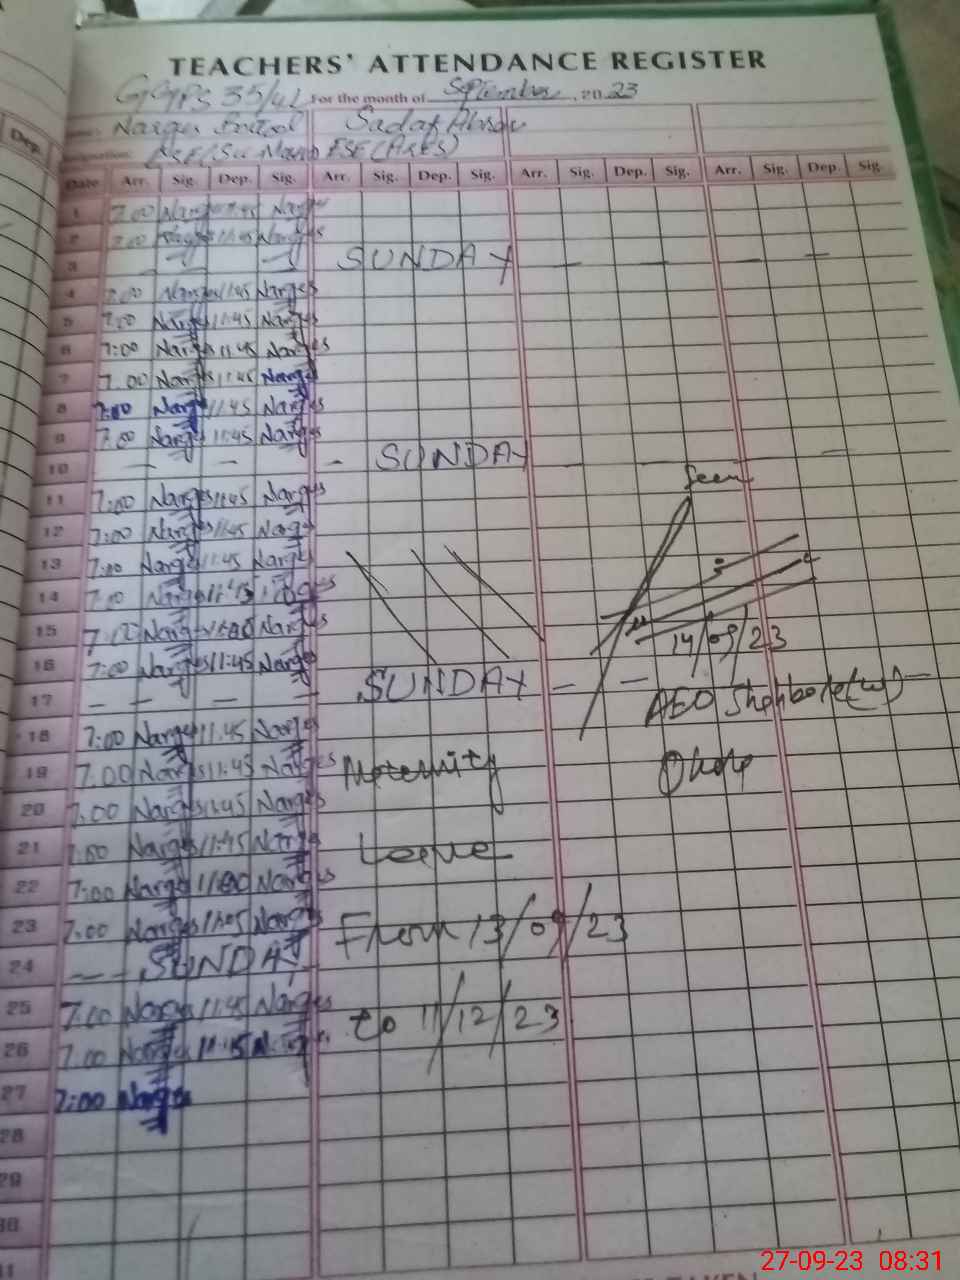 TEACHERS' ATTENDANCE REGISTER
GGPS 35/4L For the month of September, 2023
Narges Sadaf
ESE (Arts)
Date Arr. Sig. Dep. Sig. Arr. Sig. Dep. Sig. Arr. Sig. Dep. Sig. Arr. Sig. Dep. Sig.
1 7.00 Narges 11:45 Narges
2 7.00 Narges 11:45 Narges
3 — — — SUNDAY — — — —
4 7:00 Narges 11:45 Narges
5 7:00 Narges 11:45 Narges
6 7:00 Narges 11:45 Narges
7 7.00 Narges 11:45 Narges
8 7:00 Narges 11:45 Narges
9 7.00 Narges 11:45 Narges
10 — — — SUNDAY — — —
Seen
11 7:00 Narges 11:45 Narges
12 7:00 Narges 11:45 Narges
13 7:00 Narges 11:45 Narges
14 7:00 Narges Narges
15 7:00 Narges Narges 14/09/23
16 7:00 Narges 11:45 Narges
17 — — — — SUNDAY — — AEO —
18 7:00 Narges 11.45 Narges
19 7.00 Narges 11:45 Narges Maternity
20 7.00 Narges 11:45 Narges
21 7.00 Narges 11:45 Narges Leave
22 7:00 Narges Narges
23 7:00 Narges Narges From 13/09/23
24 — — SUNDAY —
25 7.00 Narges 11:45 Narges to 11/12/23
26 7.00 Narges 11:45 Narges
27 7:00 Narges
28
29
30
27-09-23 08:31